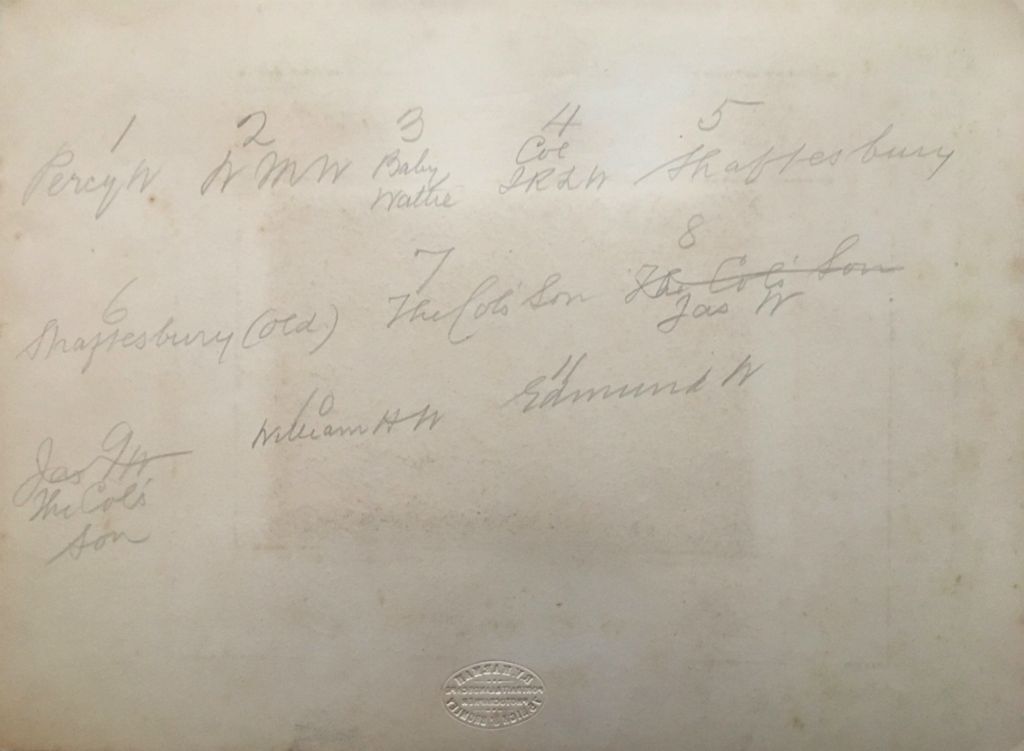 1 2 3 4 5
Percy W W M W Baby Col Shaftesbury
Wattie I R L W
6 7 8
Shaftesbury (old) The Col's Son The Col's Son
Jas W
9 10 11
Jas W William H W Edmund W
The Col's
Son